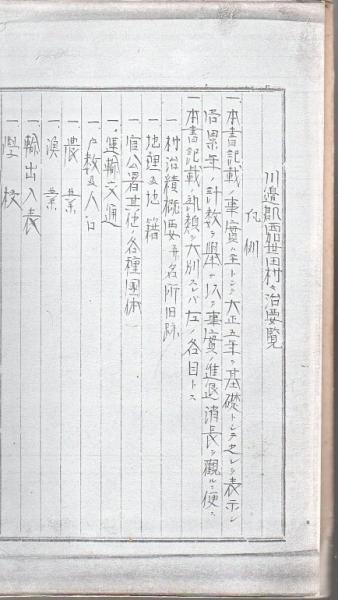 川邊郡西加世田村々治要覧
凡例
一、本書記載ノ事實ハ主トシテ大正五年ヲ基礎トシテ之レヲ表示シ
各累年ノ計数ヲ舉ケ以テ事實ノ進退消長ヲ觀ルニ便ス
一本書記載ノ類ヲ大別スレバ左ノ各目トス
一村治積概要并名所旧跡
一地理及地籍
一官公署其他ノ各種團体
一、運輸交通
一戸数及人口
一農業
一漁業
一輸出入表
一學校